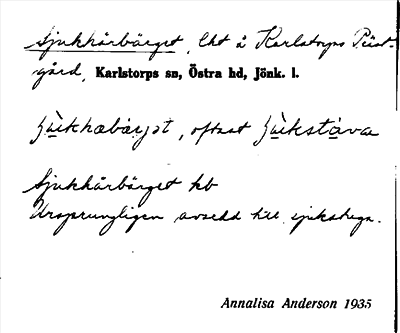 Sjukhärbärget, lht å Karlstorps Präst-
gård, Karlstorps sn, Östra hd, Jönk. l.
oftast
Sjukhärbärget hb
Ursprungligen avsedd till sjukstuga.
Annalisa Anderson 1935